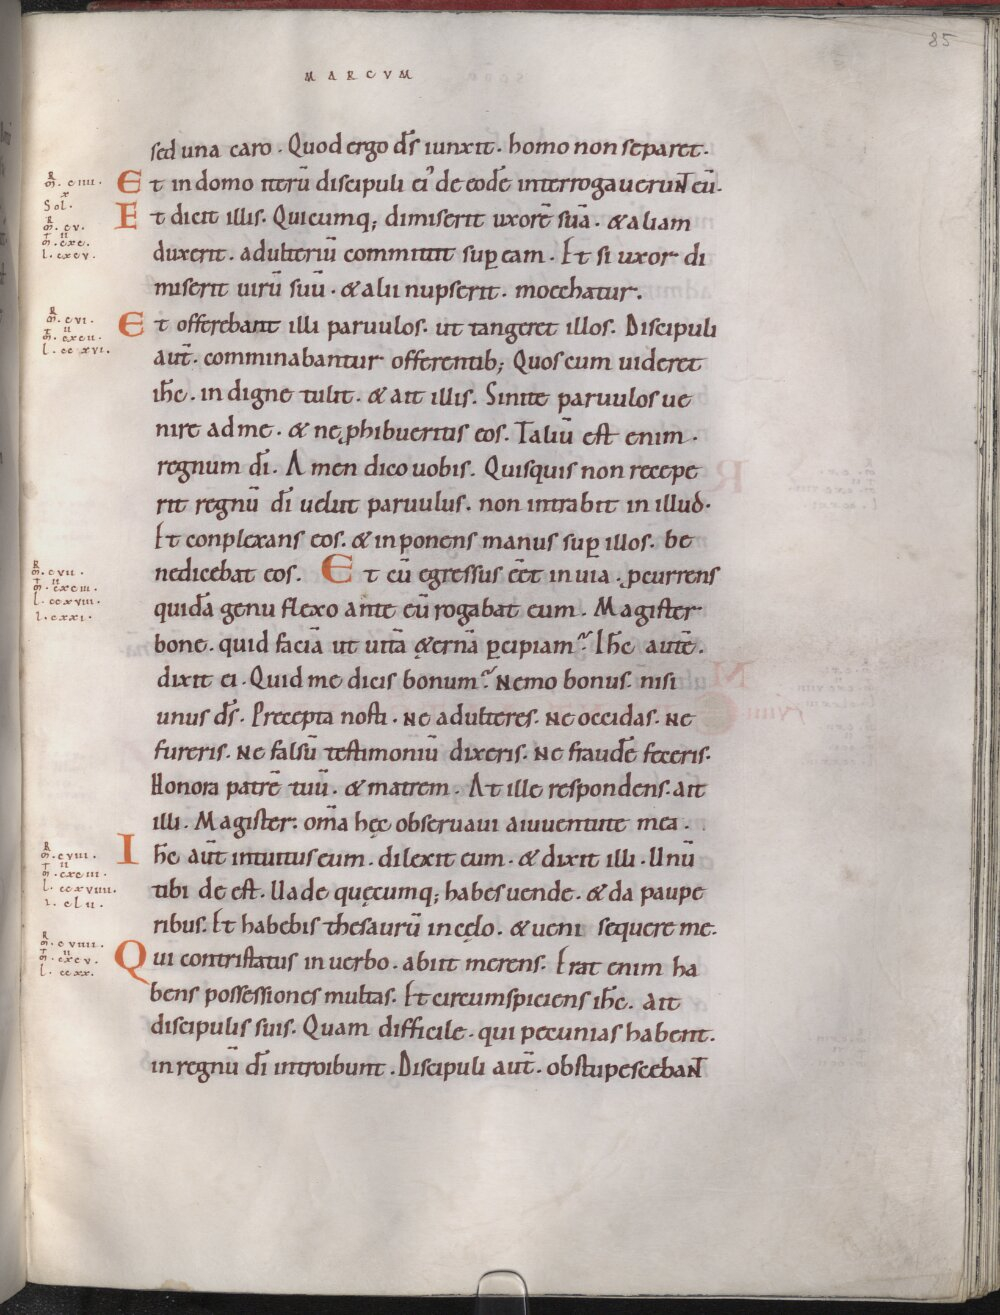 85
MARCVM
sed una caro. Quod ergo d̄s iunxit. homo non separet.
Et in domo iterū discipuli ei᾽ de eodē interrogauerunt eū.
Et dicit illis. Quicumq; dimiserit uxorē suā. & aliam
duxerit. adulteriū committit sup̱ eam. Et si uxor di
miserit uirū suū. & alii nupserit. moechatur.
Et offerebant illi paruulos. ut tangeret illos. Discipuli
aut̄. comminabantur offerentib; Quos cum uideret
ih̄c. indigne tulit. & ait illis. Sinite paruulos ue
nire ad me. & ne ꝓhibueritis eos. Taliū est enim.
regnum dī. Amen dico uobis. Quisquis non recepe
rit regnū dī uelut paruulus. non intrabit in illud.
Et conplexans eos. & inponens manus sup̱ illos. be
nedicebat eos. Et cū egressus eēt in uia. ꝓcurrens
quidā genu flexo ante eū rogabat eum. Magister
bone. quid faciā ut uitā &ernā ꝑcipiam? Ih̄c autē.
dixit ei. Quid me dicis bonum? Nemo bonus. nisi
unus d̄s. Precepta nosti. Ne adulteres. Ne occidas. Ne
fureris. Ne falsū testimoniū dixeris. Ne fraudē feceris.
Honora patrē tuū. & matrem. At ille respondens. ait
illi. Magister. om̄a hęc obseruaui a iuuentute mea.
Ih̄c aut̄ intuitus eum. dilexit eum. & dixit illi. Unū
tibi de est. Uade quęcumq; habes uende. & da paupe
ribus. Et habebis thesaurū in cęlo. & ueni sequere me.
Qui contristatus in uerbo. abiit merens. Erat enim ha
bens possessiones multas. Et circumspiciens ih̄c. ait
discipulis suis. Quam difficile. qui pecunias habent.
in regnū dī introibunt. Discipuli aut̄. obstupescebant
R
m̄. ciiii.
x
Sol.
R
m̄. cv.
ii
m̄. cxc.
l. cxcv.
R
m̄. cvi.
ii
m̄. cxcii.
l. ccxvi.
R
m̄. cvii.
ii
m̄. cxciii.
l. ccxviii.
i. cxxi.
R
m̄. cviii.
ii
m̄. cxciii.
l. ccxviiii.
i. clii.
R
m̄. cviiii.
ii
m̄. cxcv.
l. ccxx.